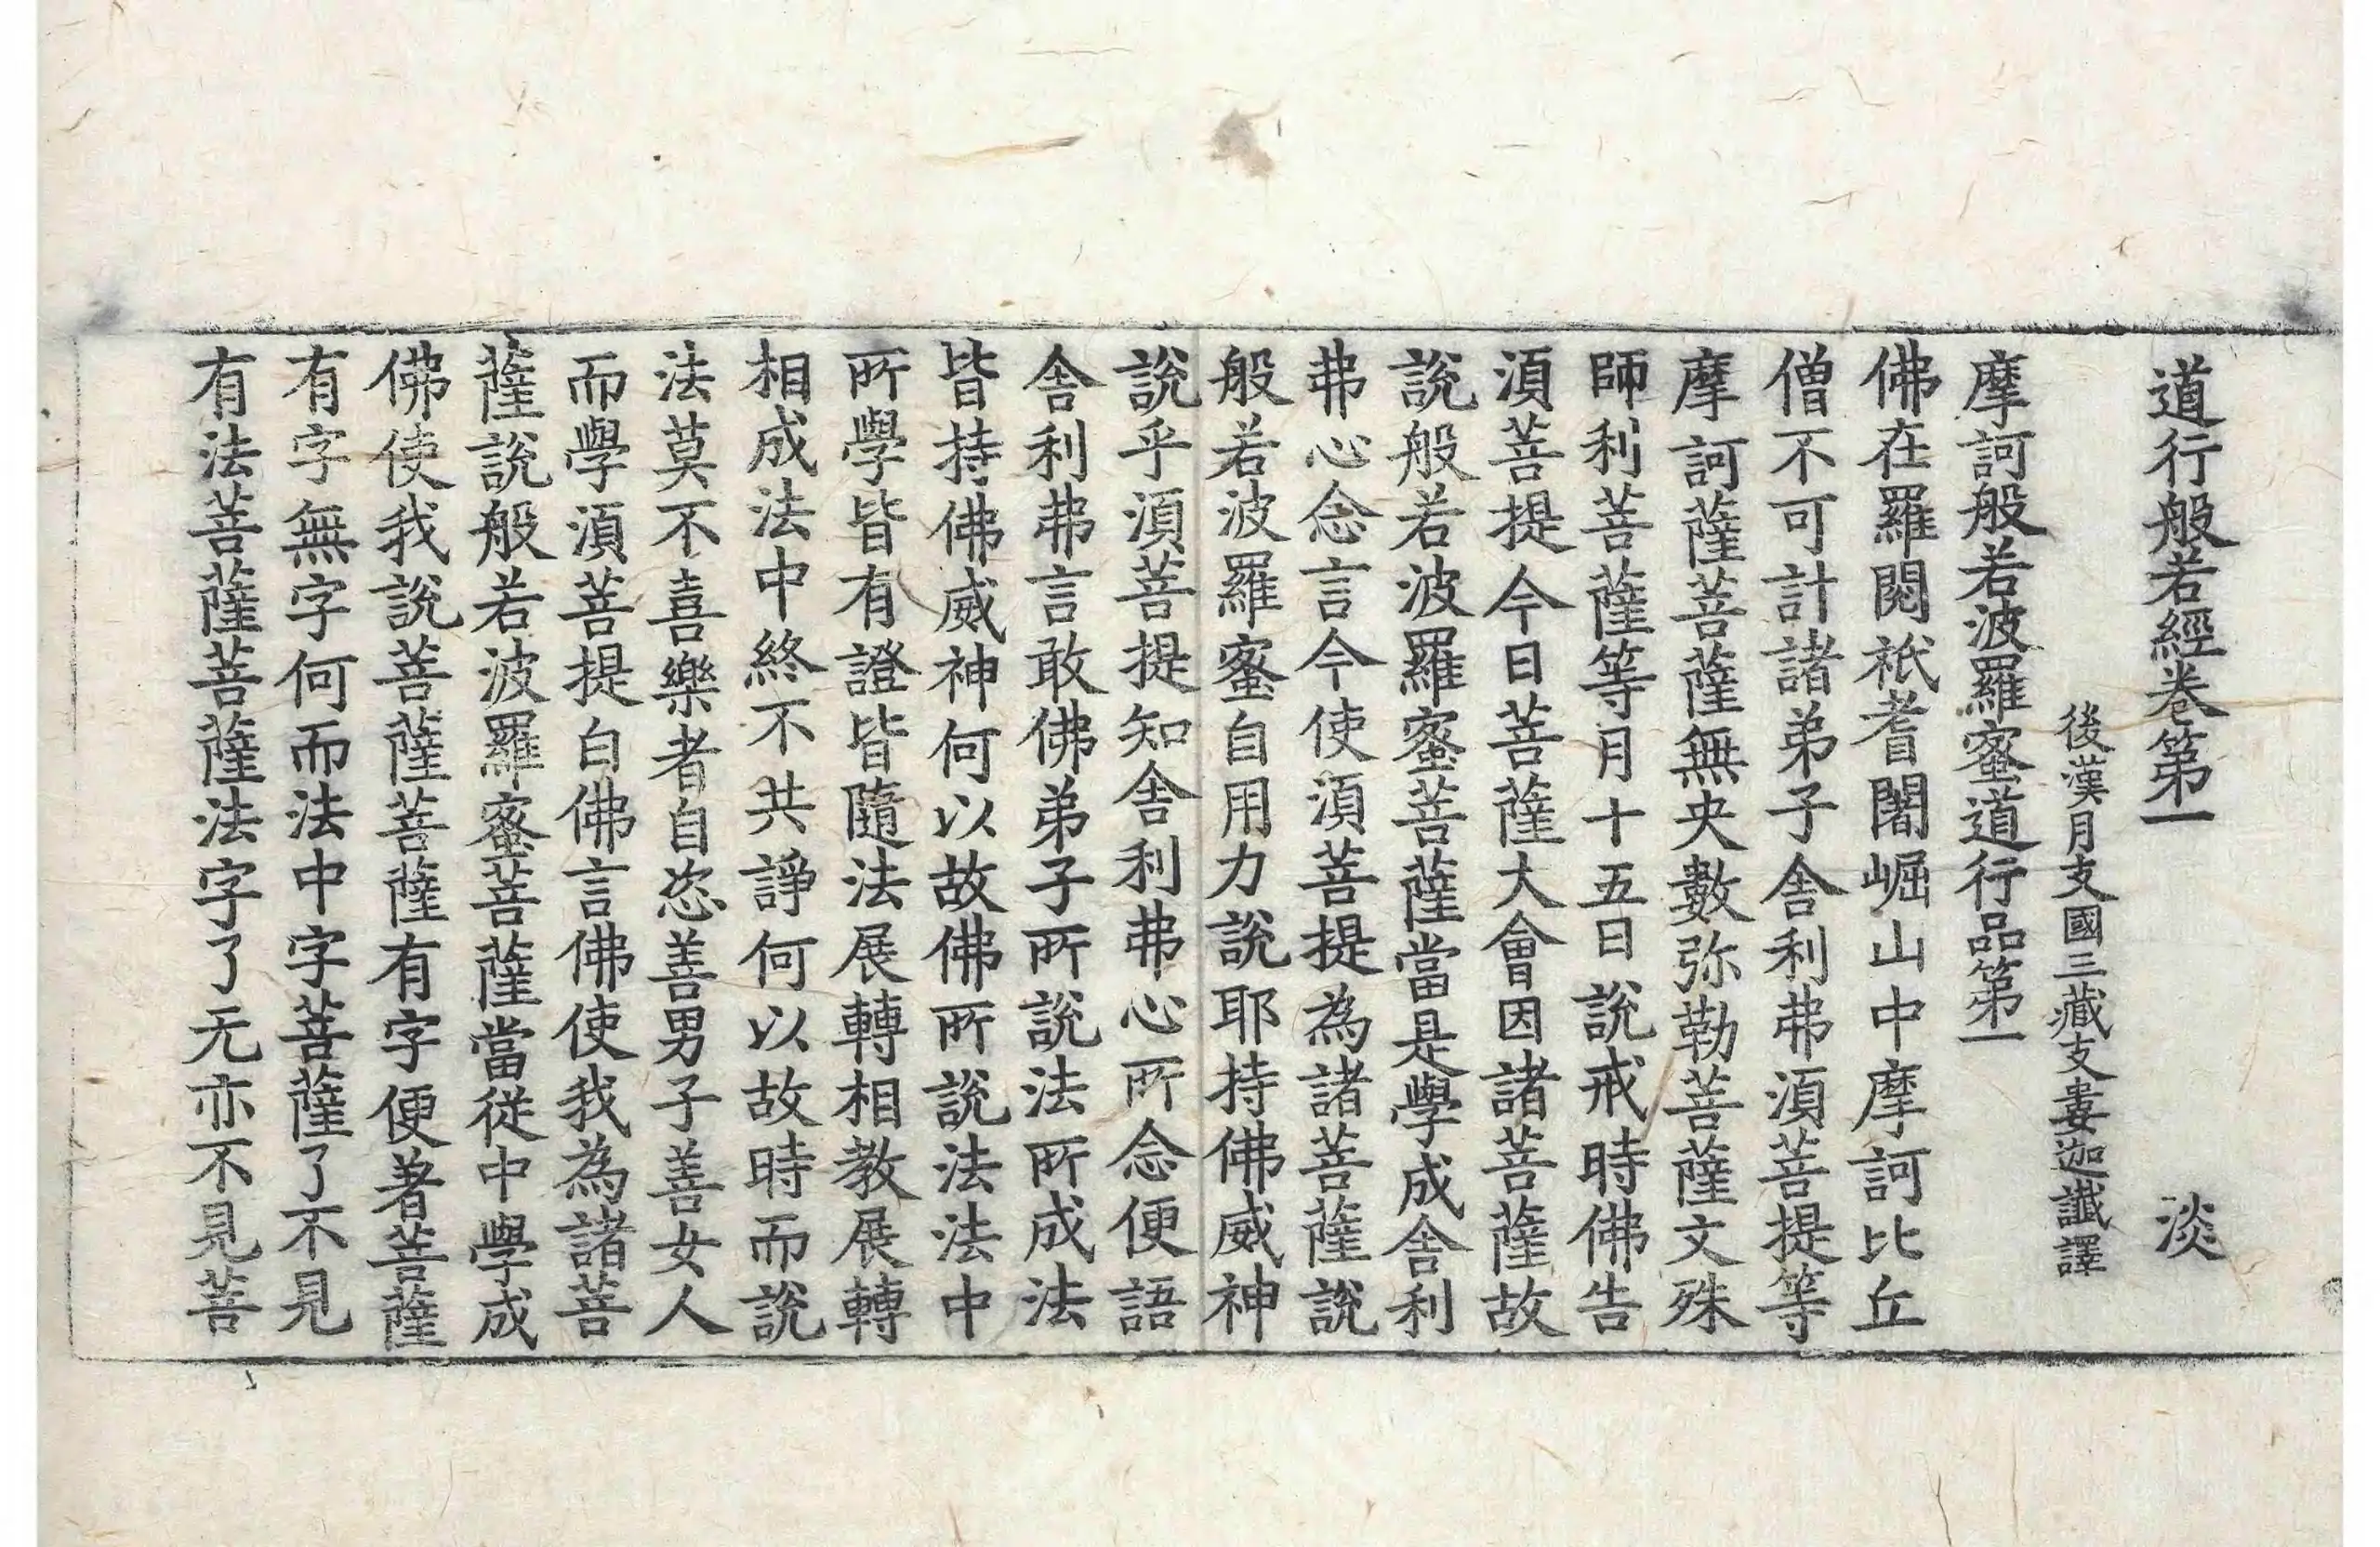 道行般若經卷第一　淡
後漢月支國三藏支婁迦讖譯
摩訶般若波羅蜜道行品第一
佛在羅閱祇耆闍崛山中摩訶比丘
僧不可計諸弟子舍利弗須菩提等
摩訶薩菩薩無央數弥勒菩薩文殊
師利菩薩等月十五日說戒時佛告
須菩提今日菩薩大會因諸菩薩故
說般若波羅蜜菩薩當是學成舍利
弗心念言今使須菩提為諸菩薩說
般若波羅蜜自用力說耶持佛威神
說乎須菩提知舍利弗心所念便語
舍利弗言敢佛弟子所說法所成法
皆持佛威神何以故佛所說法法中
所學皆有證皆隨法展轉相教展轉
相成法中終不共諍何以故時而說
法莫不喜樂者自恣善男子善女人
而學須菩提白佛言佛使我為諸菩
薩說般若波羅蜜菩薩當從中學成
佛使我說菩薩菩薩有字便著菩薩
有字無字何而法中字菩薩了不見
有法菩薩菩薩法字了无亦不見菩